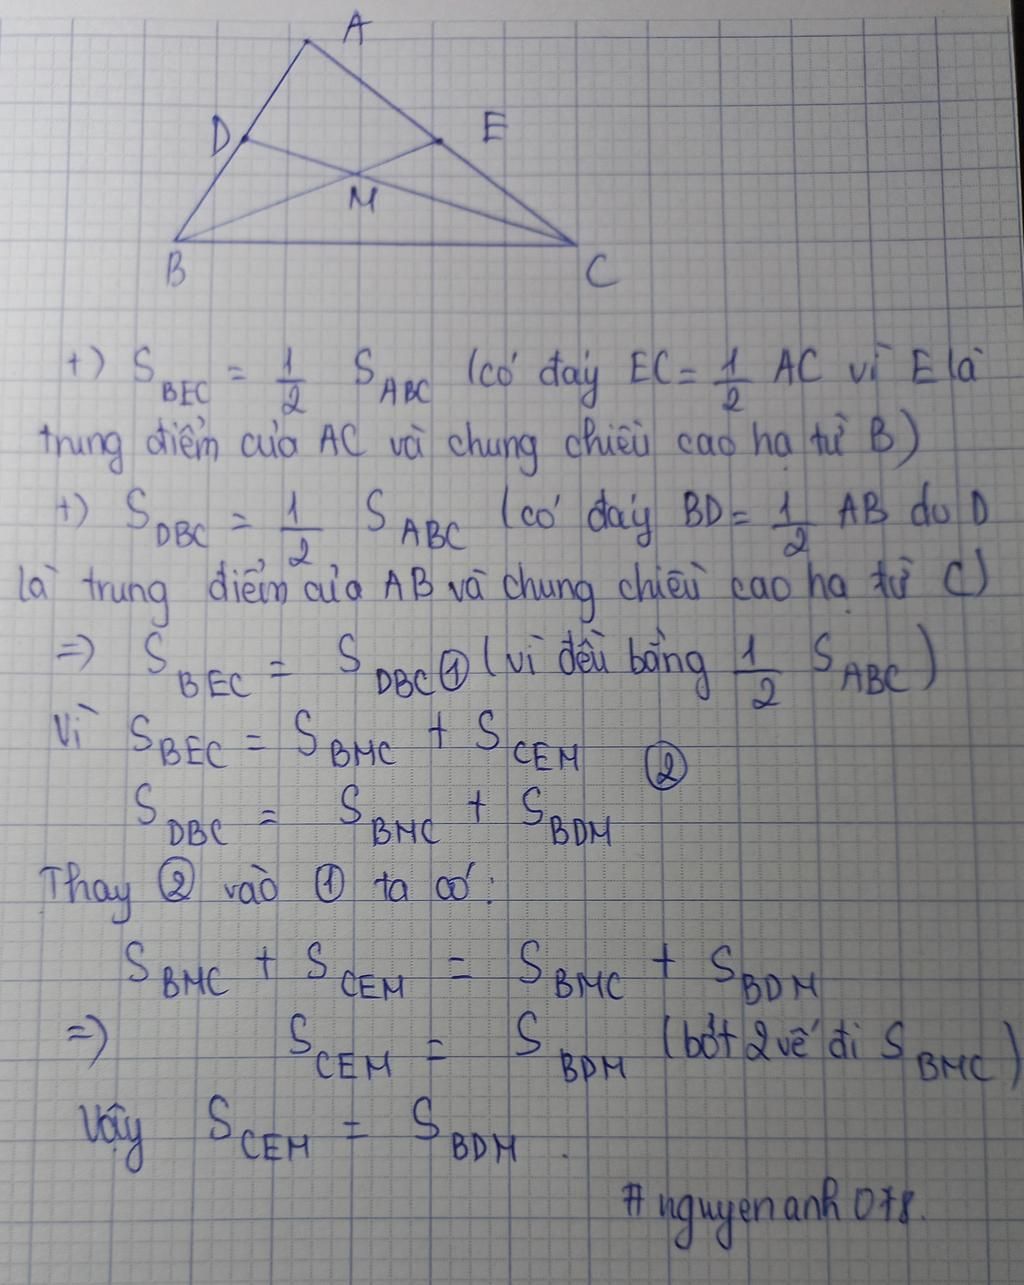 A
D
E
M
B
C
+) S_BEC = 1/2 S_ABC (có đáy EC = 1/2 AC vì E là
trung điểm của AC và chung chiều cao hạ từ B)
+) S_DBC = 1/2 S_ABC (có đáy BD = 1/2 AB do D
là trung điểm của AB và chung chiều cao hạ từ C)
=> S_BEC = S_DBC ① (vì đều bằng 1/2 S_ABC)
Vì S_BEC = S_BMC + S_CEM
②
S_DBC = S_BMC + S_BDM
Thay ② vào ① ta có:
S_BMC + S_CEM = S_BMC + S_BDM
=> S_CEM = S_BDM (bớt 2 vế đi S_BMC)
Vậy S_CEM = S_BDM.
#nguyenanh078.